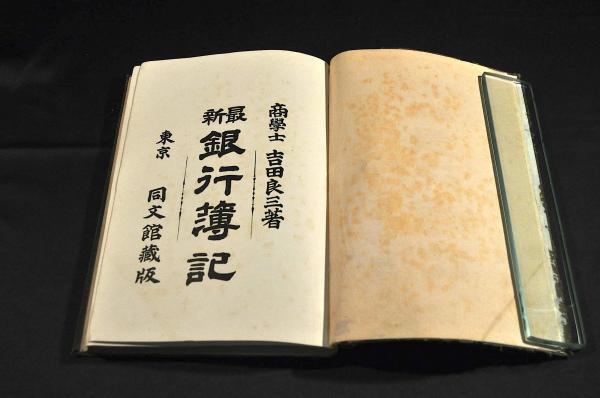 商學士 吉田良三著
最新 銀行簿記
東京 同文館藏版